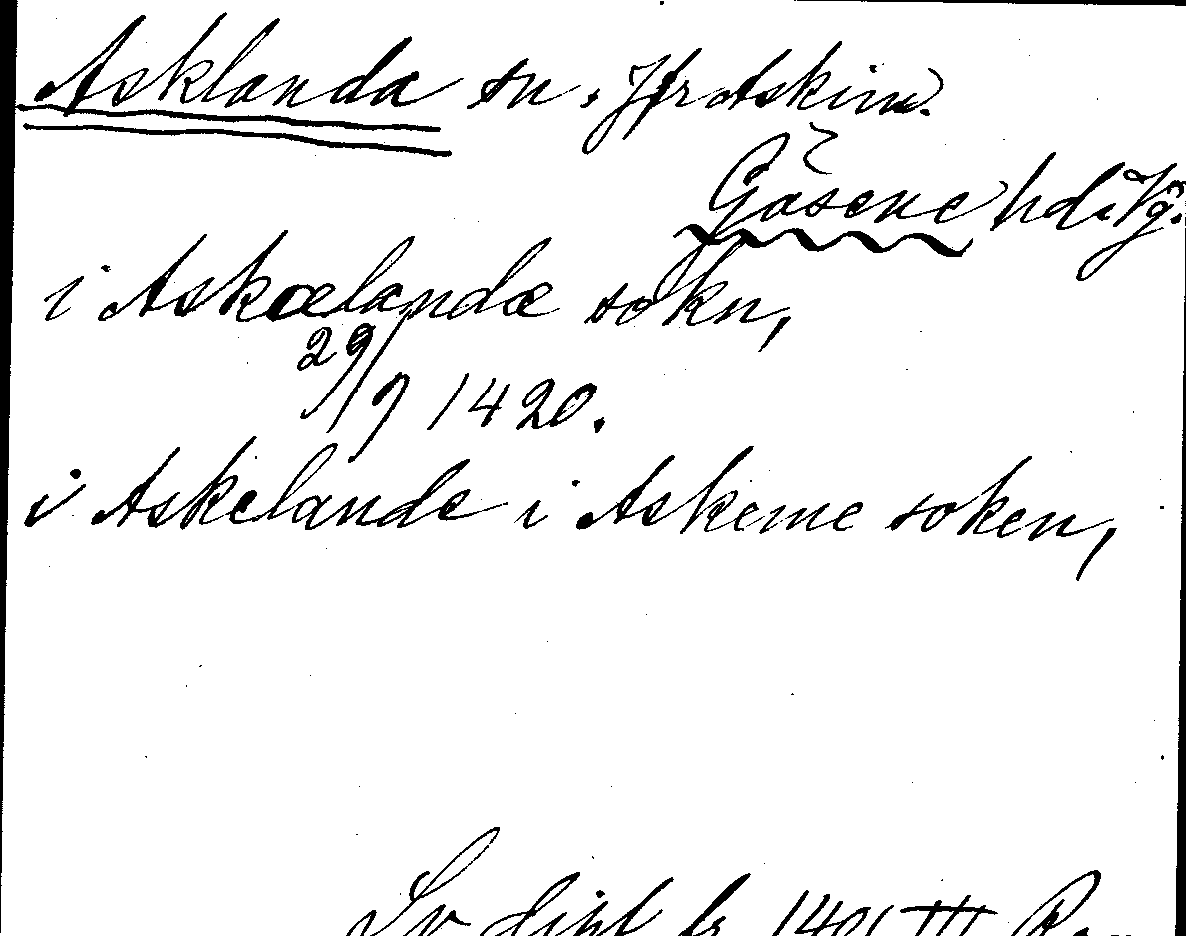 Asklanda sn. Jfr Askim.
Gäsene hd. Vg.
i Askælandæ sokn,
29/9 1420.
i Askelande i Askeme soken,
Sv dipl fr 1401 III